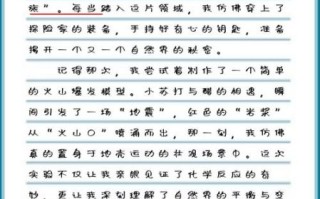 旅”。每当踏入这片领域，我仿佛穿上了
探险家的装备，手持好奇心的钥匙，准备
揭开一个又一个自然界的秘密。
记得那次，我尝试着制作了一个简单
的火山爆发模型。小苏打与醋的相遇，瞬
间引发了一场“地震”，红色的“岩浆”
从“火山口”喷涌而出，那一刻，我仿佛
真的置身于地壳运动的壮观场景中。这次
实验不仅让我亲眼见证了化学反应的奇
妙，更让我深刻理解了自然界的平衡与变